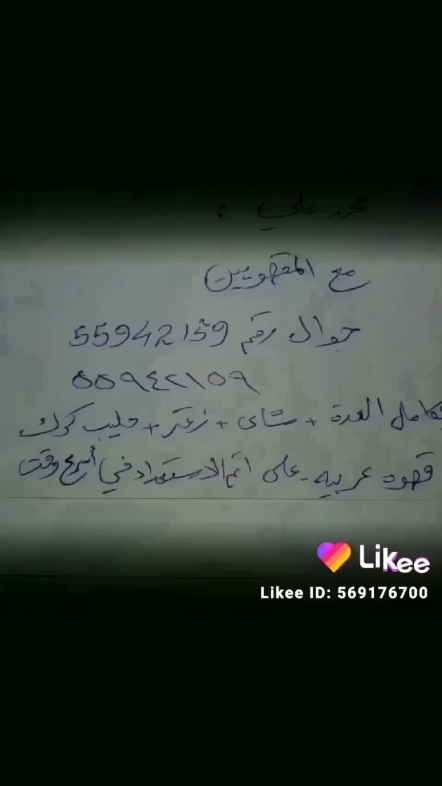 محمد علي :
مع المقهويين
جوال رقم 55942159
٥٥٩٤٢١٥٩
بكامل العدة + شاي + زعتر + حليب كرك
قهوه عربيه - على اتم الاستعداد في أسرع وقت
Likee
Likee ID: 569176700